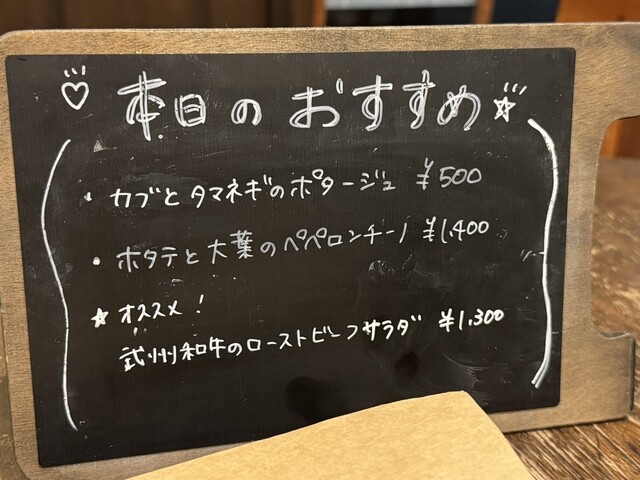 本日のおすすめ
・カブとタマネギのポタージュ ¥500
・ホタテと大葉のペペロンチーノ ¥1,400
☆オススメ!
武州和牛のローストビーフサラダ ¥1,300